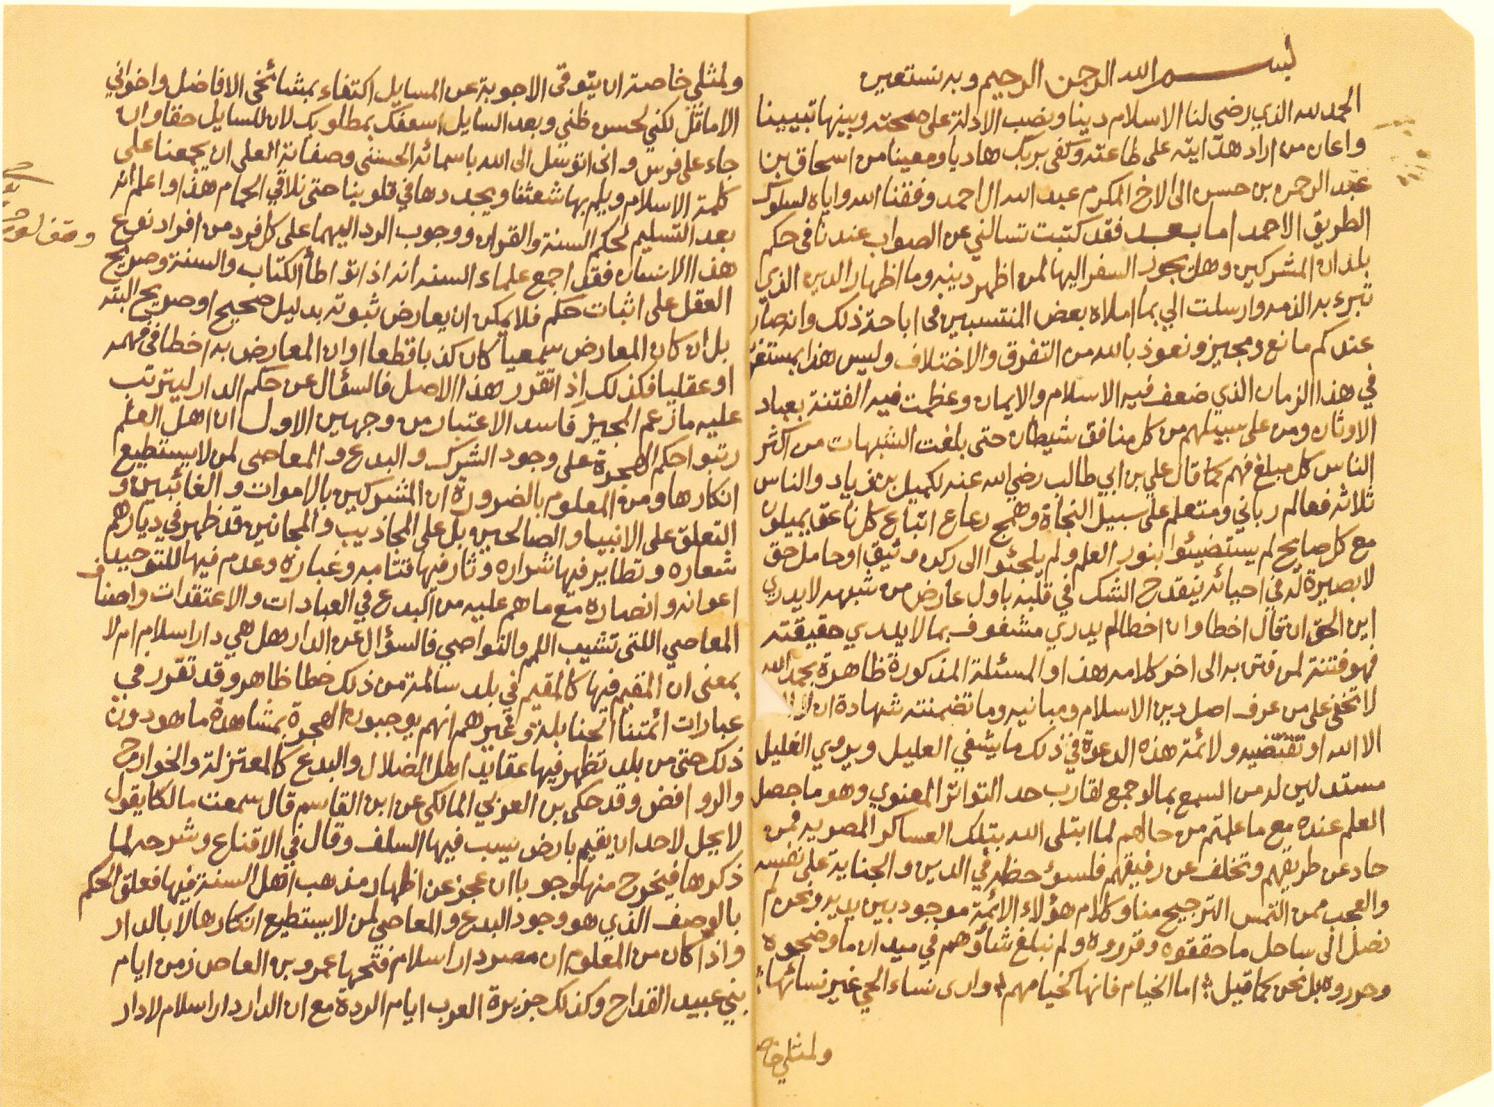 بسم الله الرحمن الرحيم وبه نستعين
الحمد لله الذي رضي لنا الاسلام دينا ونصب الادلة على صحته وبينها تبيينا
واعان من اراد هدايته على طاعته وكفى بربك هاديا ومعينا من اسحاق بن
عبد الرحمن بن حسن الى الاخ المكرم عبد الله ال احمد وفقنا الله واياه لسلوك
الطريق الاحمد اما بعد فقد كتبت تسالني عن الصواب عندنا في حكم
بلدان المشركين وهل يجوز السفر اليها لمن اظهر دينه وما اظهار الدين الذي
تبرء به الذمه وارسلت الي بما املاه بعض المنتسبين في اباحة ذلك وانه صار
عندكم مانع ومجيز ونعوذ بالله من التفرق والاختلاف وليس هذا بمستغرب
في هذا الزمان الذي ضعف فيه الاسلام والايمان وعظمت فيه الفتنة بعباد
الاوثان ومن على سبيلهم من كل منافق شيطان حتى بلغت الشبهات من اكثر
الناس كل مبلغ فهم كما قال علي بن ابي طالب رضي الله عنه لكميل بن زياد والناس
ثلاثه فعالم رباني ومتعلم على سبيل النجاة وهمج رعاع اتباع كل ناعق يميلون
مع كل صايح لم يستضيئوا بنور العلم ولم يلجئوا الى ركن وثيق او حامل حق
لا بصيرة له في احيائه ينقدح الشك في قلبه باول عارض من شبهه لا يدري
اين الحق ان قال اخطا وان اخطا لم يدري مشغوف بما لا يدري حقيقته
فهو فتنة لمن فتن به الى اخر كلامه هذا والمسئلة المذكورة ظاهرة بحمد الله
لا تخفى على من عرف اصل دين الاسلام ومبانيه وما تضمنته شهادة ان لا اله
الا الله او تقتضيه ولائمة هذه الدعوة في ذلك ما يشفي العليل ويروي الغليل
مستدلين له من السمع بما لو جمع لقارب حد التواتر المعنوي وهو ما حصل
العلم عنده مع ما علمتم من حالهم لما ابتلى الله بتلك العساكر المصريه فمن
حاد عن طريقهم وتخلف عن رفيقهم فلسوء حظه في الدين والجناية على نفسه
والعجب ممن التمس الترجيح منا وكلام هؤلاء الائمة موجود بين يديه ونحن لم
نصل الى ساحل ما حققوه وقرروه ولم نبلغ شأوهم في ميدان ما وضحوه
وحرروه بل نحن كما قيل اما الخيام فانها كخيامهم وارى نساء الحي غير نسائها
ولمثلي خاصة
ولمثلي خاصة ان يتوقى الاجوبة عن المسايل اكتفاء بمشائخي الافاضل واخواني
الاماثل لكني لحسن ظني وبعد السايل اسعفك بمطلوبك لان للسايل حقا وان
جاء على فرس واني اتوسل الى الله باسمائه الحسنى وصفاته العلى ان يجمعنا على
كلمة الاسلام ويلم بها شعثنا ويجددها في قلوبنا حتى نلاقي الحمام هذا واعلم انه
بعد التسليم لحكم السنة والقران ووجوب الرد اليهما على كل فرد من افراد نوع
هذا الانسان فقد اجمع علماء السنه انه اذا تواطأ الكتاب والسنة وصريح
العقل على اثبات حكم فلا يمكن ان يعارض ثبوته بدليل صحيح او صريح البته
بل ان كان المعارض سمعيا كان كذبا قطعا او ان المعارض به اخطا في فهمه
او عقليا فكذلك اذا تقرر هذا الاصل فالسؤال عن حكم الدار ليترتب
عليه ما زعم المجيز فاسد الاعتبار من وجهين الاول ان اهل العلم
رتبوا حكم الهجرة على وجود الشرك والبدع والمعاصي لمن لا يستطيع
انكارها ومن المعلوم بالضرورة ان المشركين بالاموات والغائبين و
التعلق على الانبيا والصالحين بل على المجاذيب والمجانين قد ظهر في ديارهم
شعاره وتطاير فيها شراره وثار فيها قتامه وغباره وعدم فيها للتوحيد
اعوانه وانصاره مع ما هم عليه من البدع في العبادات والاعتقدات واصناف
المعاصي اللتي تشيب اللمم والنواصي فالسؤال عن الدار هل هي دار اسلام ام لا
بمعنى ان المقيم فيها كالمقيم في بلد سالمة من ذلك خطا ظاهر وقد تقرر في
عبارات ائمتنا الحنابلة وغيرهم انهم يوجبون الهجرة بمشاهدة ما هو دون
ذلك حتى من بلد تظهر فيها عقايد اهل الضلال والبدع كالمعتزلة والخوارج
والروافض وقد حكى بن العربي المالكي عن ابن القاسم قال سمعت مالكا يقول
لا يحل لاحد ان يقيم بارض يسب فيها السلف وقال في الاقناع وشرحه لما
ذكرها فيخرج منها وجوبا ان عجز عن اظهار مذهب اهل السنة فيها فعلق الحكم
بالوصف الذي هو وجود البدع والمعاصي لمن لا يستطيع انكارها لا بالدار
واذا كان من المعلوم ان مصر دار اسلام فتحها عمرو بن العاص زمن ايام
بني عبيد القداح وكذلك جزيرة العرب ايام الردة مع ان الدار دار اسلام لا دار